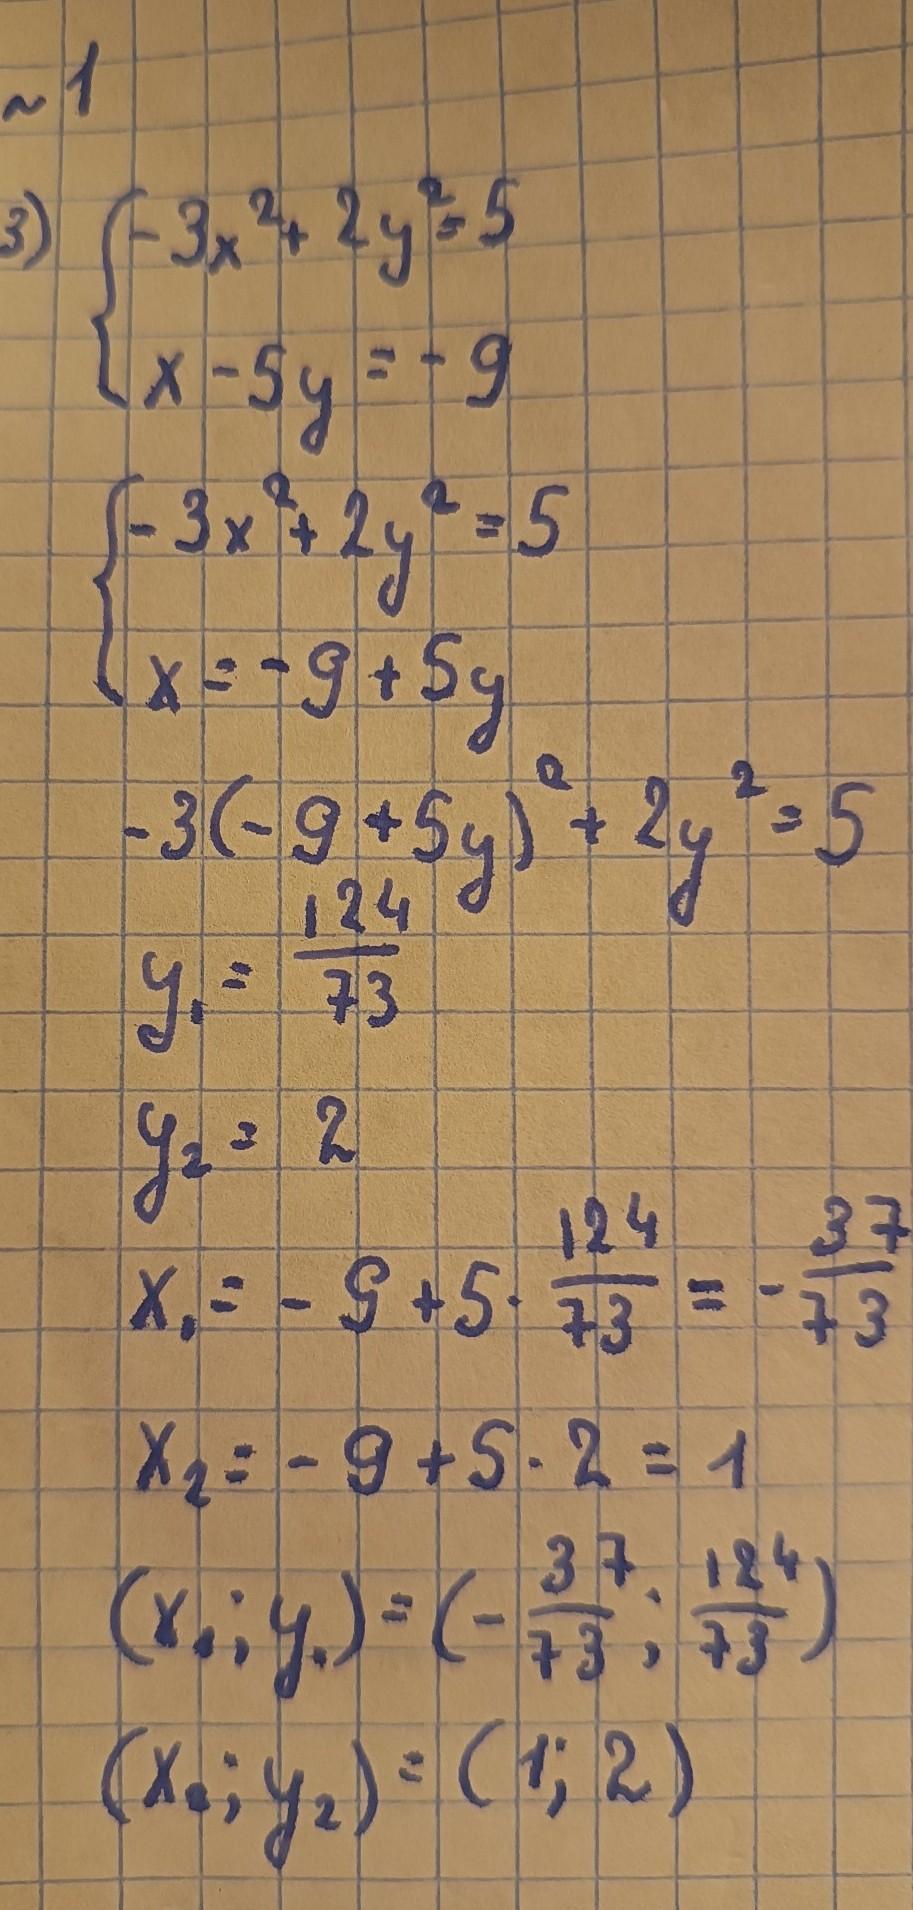 ~1
3) { -3x² + 2y² = 5
x - 5y = -9
{ -3x² + 2y² = 5
x = -9 + 5y
-3(-9 + 5y)² + 2y² = 5
y₁ = 124/73
y₂ = 2
x₁ = -9 + 5 · 124/73 = -37/73
x₂ = -9 + 5 · 2 = 1
(x₁; y₁) = (-37/73; 124/73)
(x₂; y₂) = (1; 2)